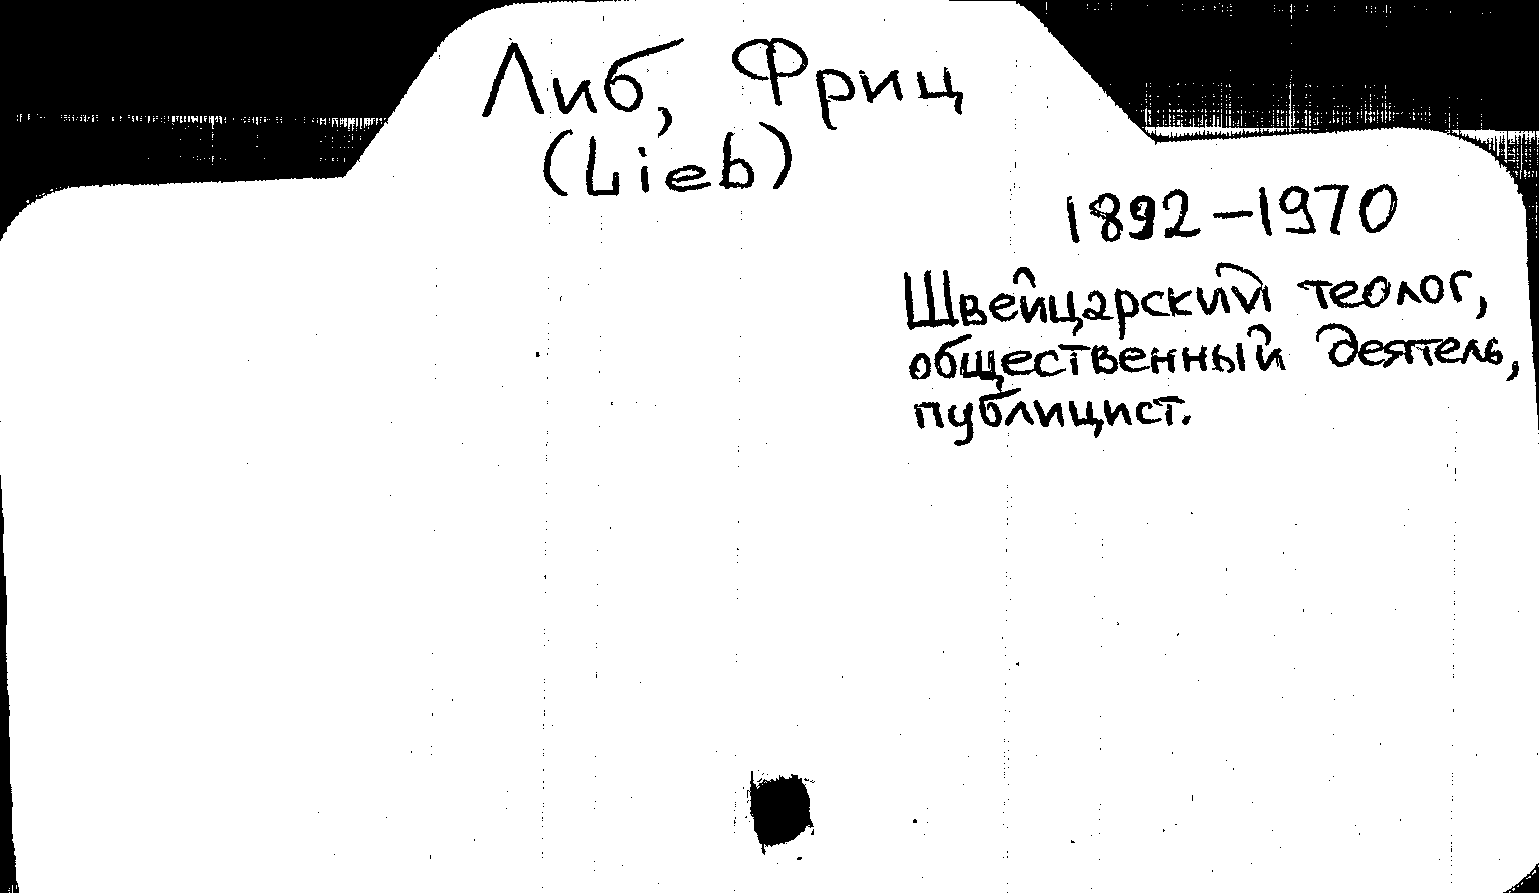 Либ, Фриц
(Lieb)
1892–1970
Швейцарский теолог,
общественный деятель,
публицист.